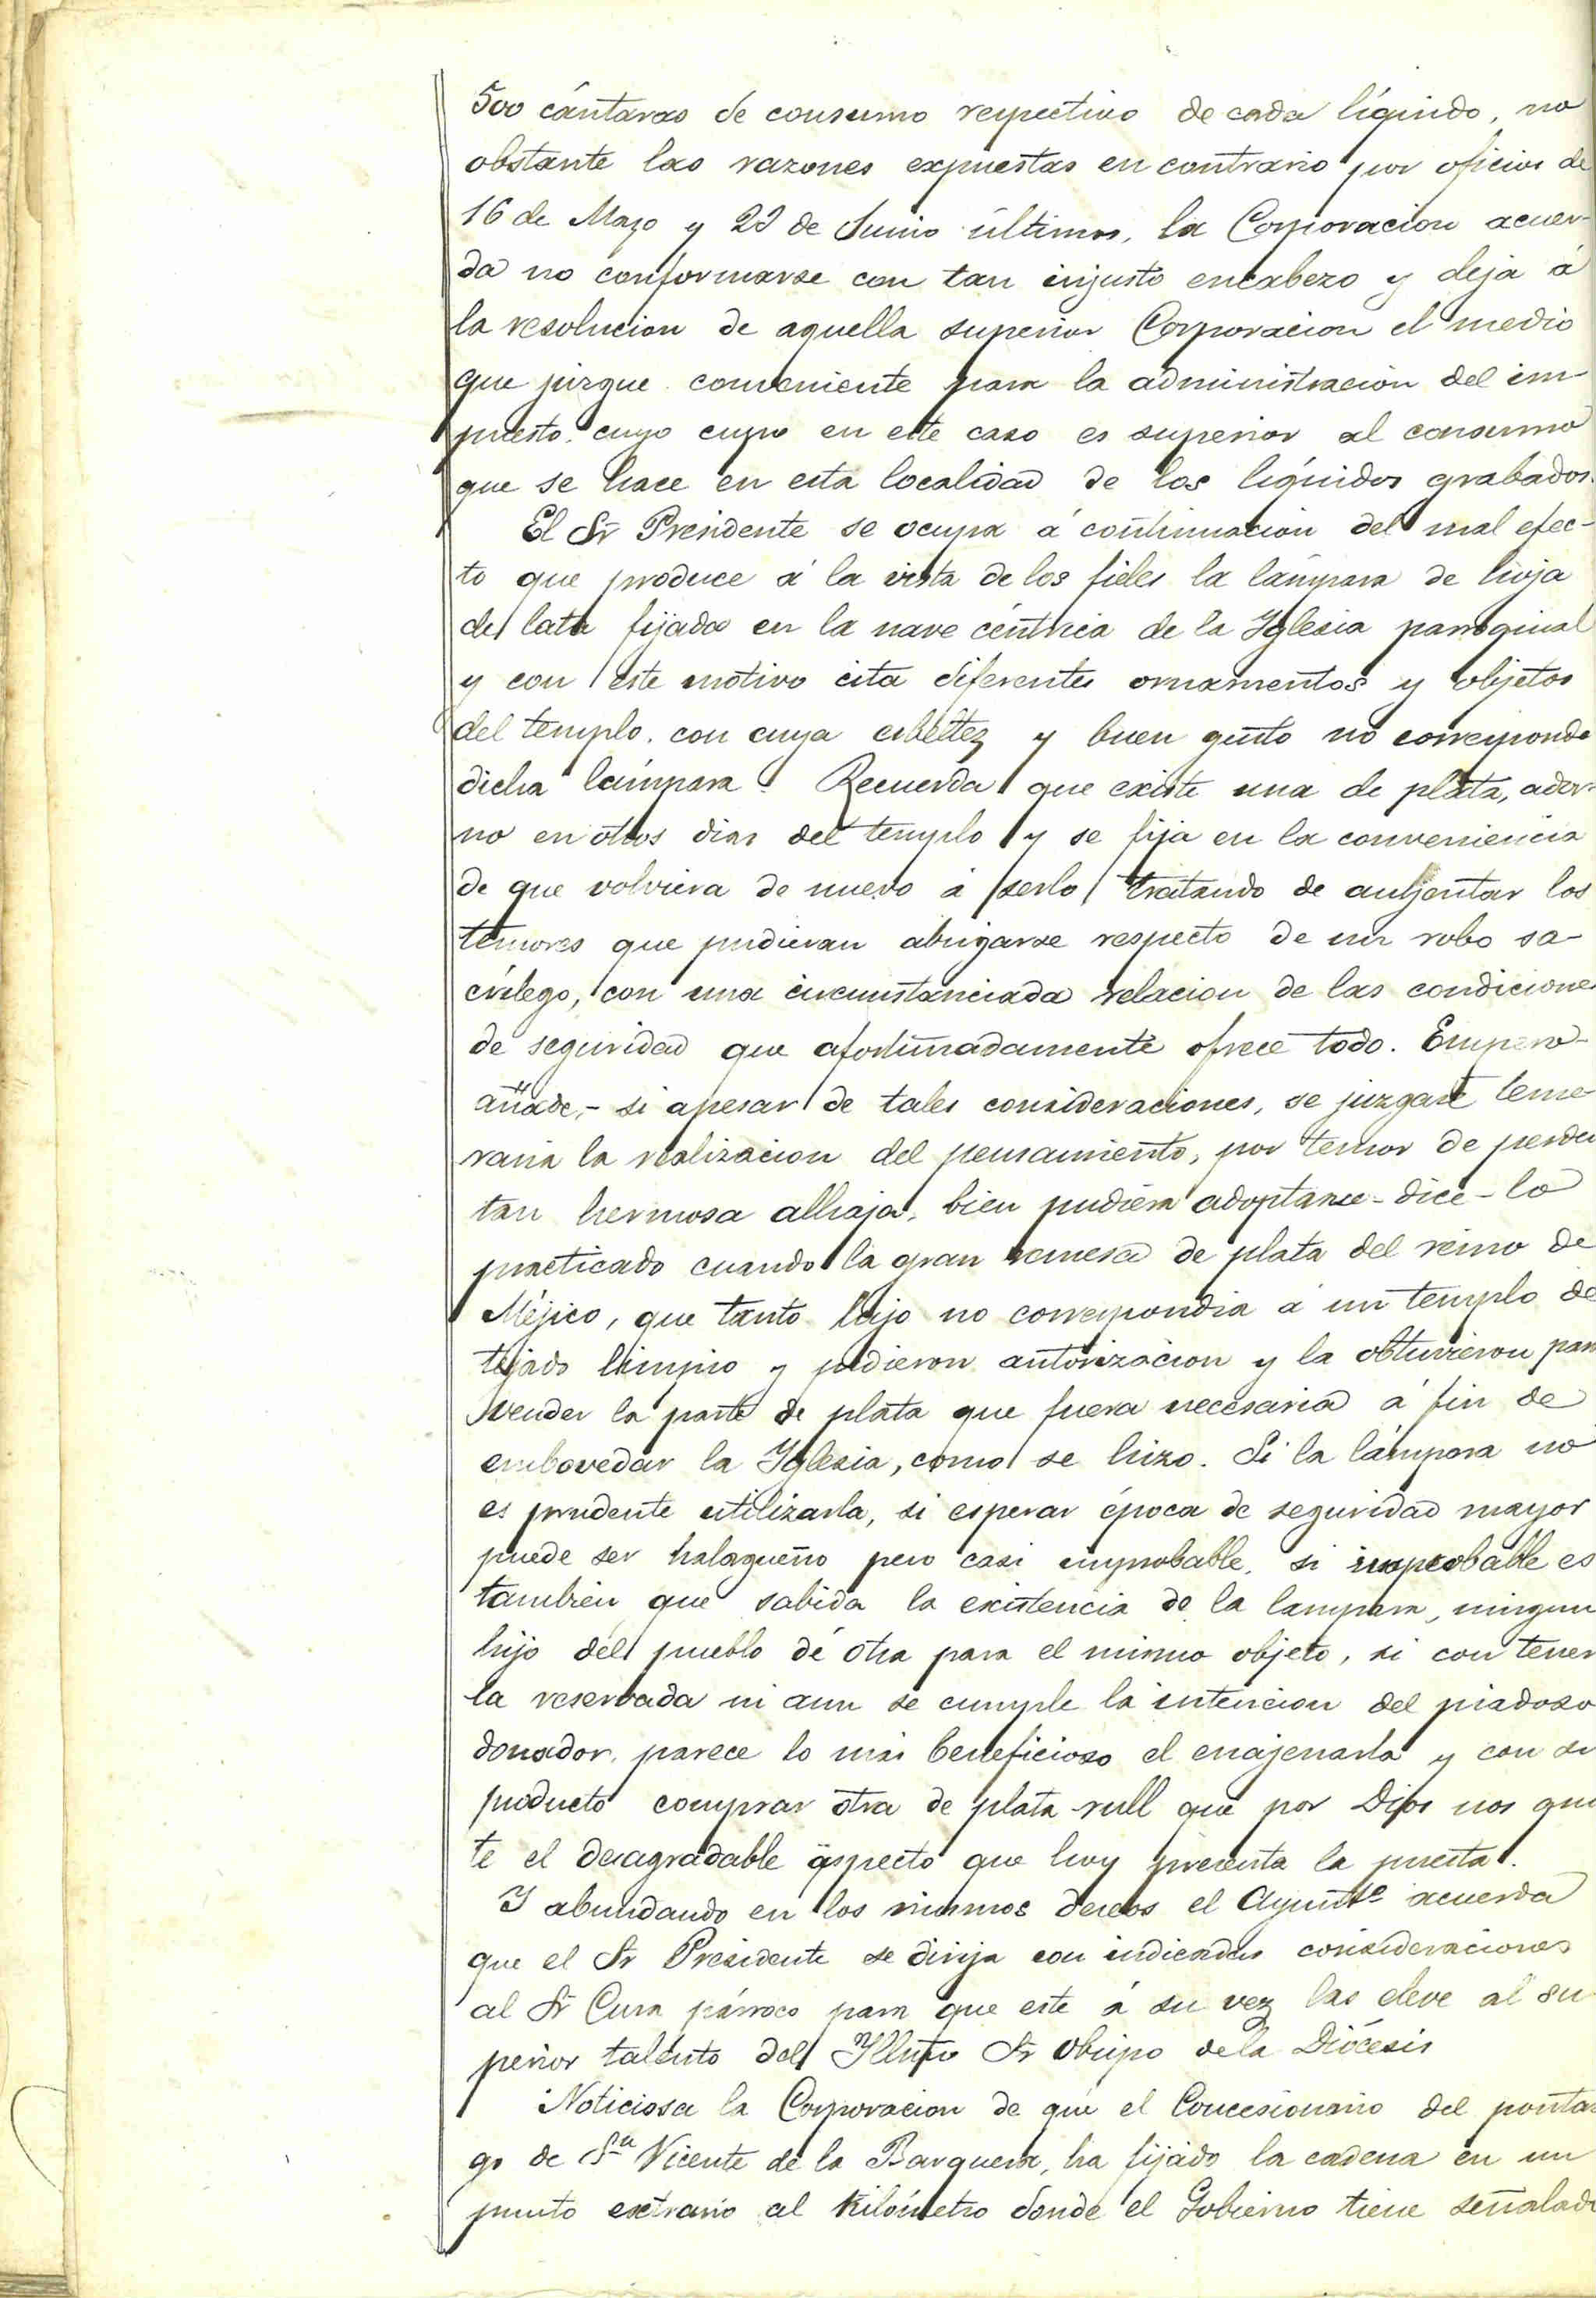 500 cántaras de consumo respectivo de cada líquido, no
obstante las razones expuestas en contrario por oficios de
16 de Mayo y 22 de Junio últimos, la Corporacion acuer-
da no conformarse con tan injusto encabezo y deja á
la resolucion de aquella superior Corporacion el medio
que juzgue conveniente para la administracion del im-
puesto cuyo cupo en este caso es superior al consumo
que se hace en esta localidad de los líquidos grabados.
El Sr Presidente se ocupa á continuacion del mal efec-
to que produce á la vista de los fieles la lámpara de hoja
de lata fijada en la nave céntrica de la Yglesia parroquial
y con este motivo cita diferentes ornamentos y objetos
del templo, con cuya esbeltez y buen gusto no corresponde
dicha lámpara. Recuerda que existe una de plata, ador-
no en otros dias del templo y se fija en la conveniencia
de que volviera de nuevo á serlo tratando de auyentar los
temores que pudieran abrigarse respecto de un robo sa-
crílego, con una circunstanciada relacion de las condiciones
de seguridad que afortunadamente ofrece todo. Empero-
añade,- si apesar de tales consideraciones, se juzgase teme
raria la realizacion del pensamiento, por temor de perder
tan hermosa alhaja, bien pudiera adoptarse - dice - lo
practicado cuando la gran remesa de plata del reino de
Méjico, que tanto lujo no correspondia á un templo de
tejado limpio y pidieron autorizacion y la obtuvieron para
vender la parte de plata que fuera necesaria á fin de
embovedar la Yglesia, como se hizo. Si la lámpara no
es prudente utilizarla, si esperar época de seguridad mayor
puede ser halagueño pero casi improbable, si improbable es
tambien que sabida la existencia de la lampara, ningun
hijo del pueblo dé otra para el mismo objeto, si con tener
la reservada ni aun se cumple la intencion del piadoso
donador, parece lo más beneficioso el enajenarla y con su
producto comprar otra de plata rull que por Dios nos qui
te el desagradable aspecto que hoy presenta la puesta.
Y abundando en los mismos deseos el Ayuntº acuerda
que el Sr Presidente se dirija con indicadas consideraciones
al Sr Cura párroco para que este á su vez las eleve al su
perior talento del Yllmo Sr Obispo de la Diócesis
Noticiosa la Corporacion de que el Concesionario del pontaz
go de Sn Vicente de la Barquera, ha fijado la cadena en un
punto extraño al Kilómetro donde el Gobierno tiene señalado